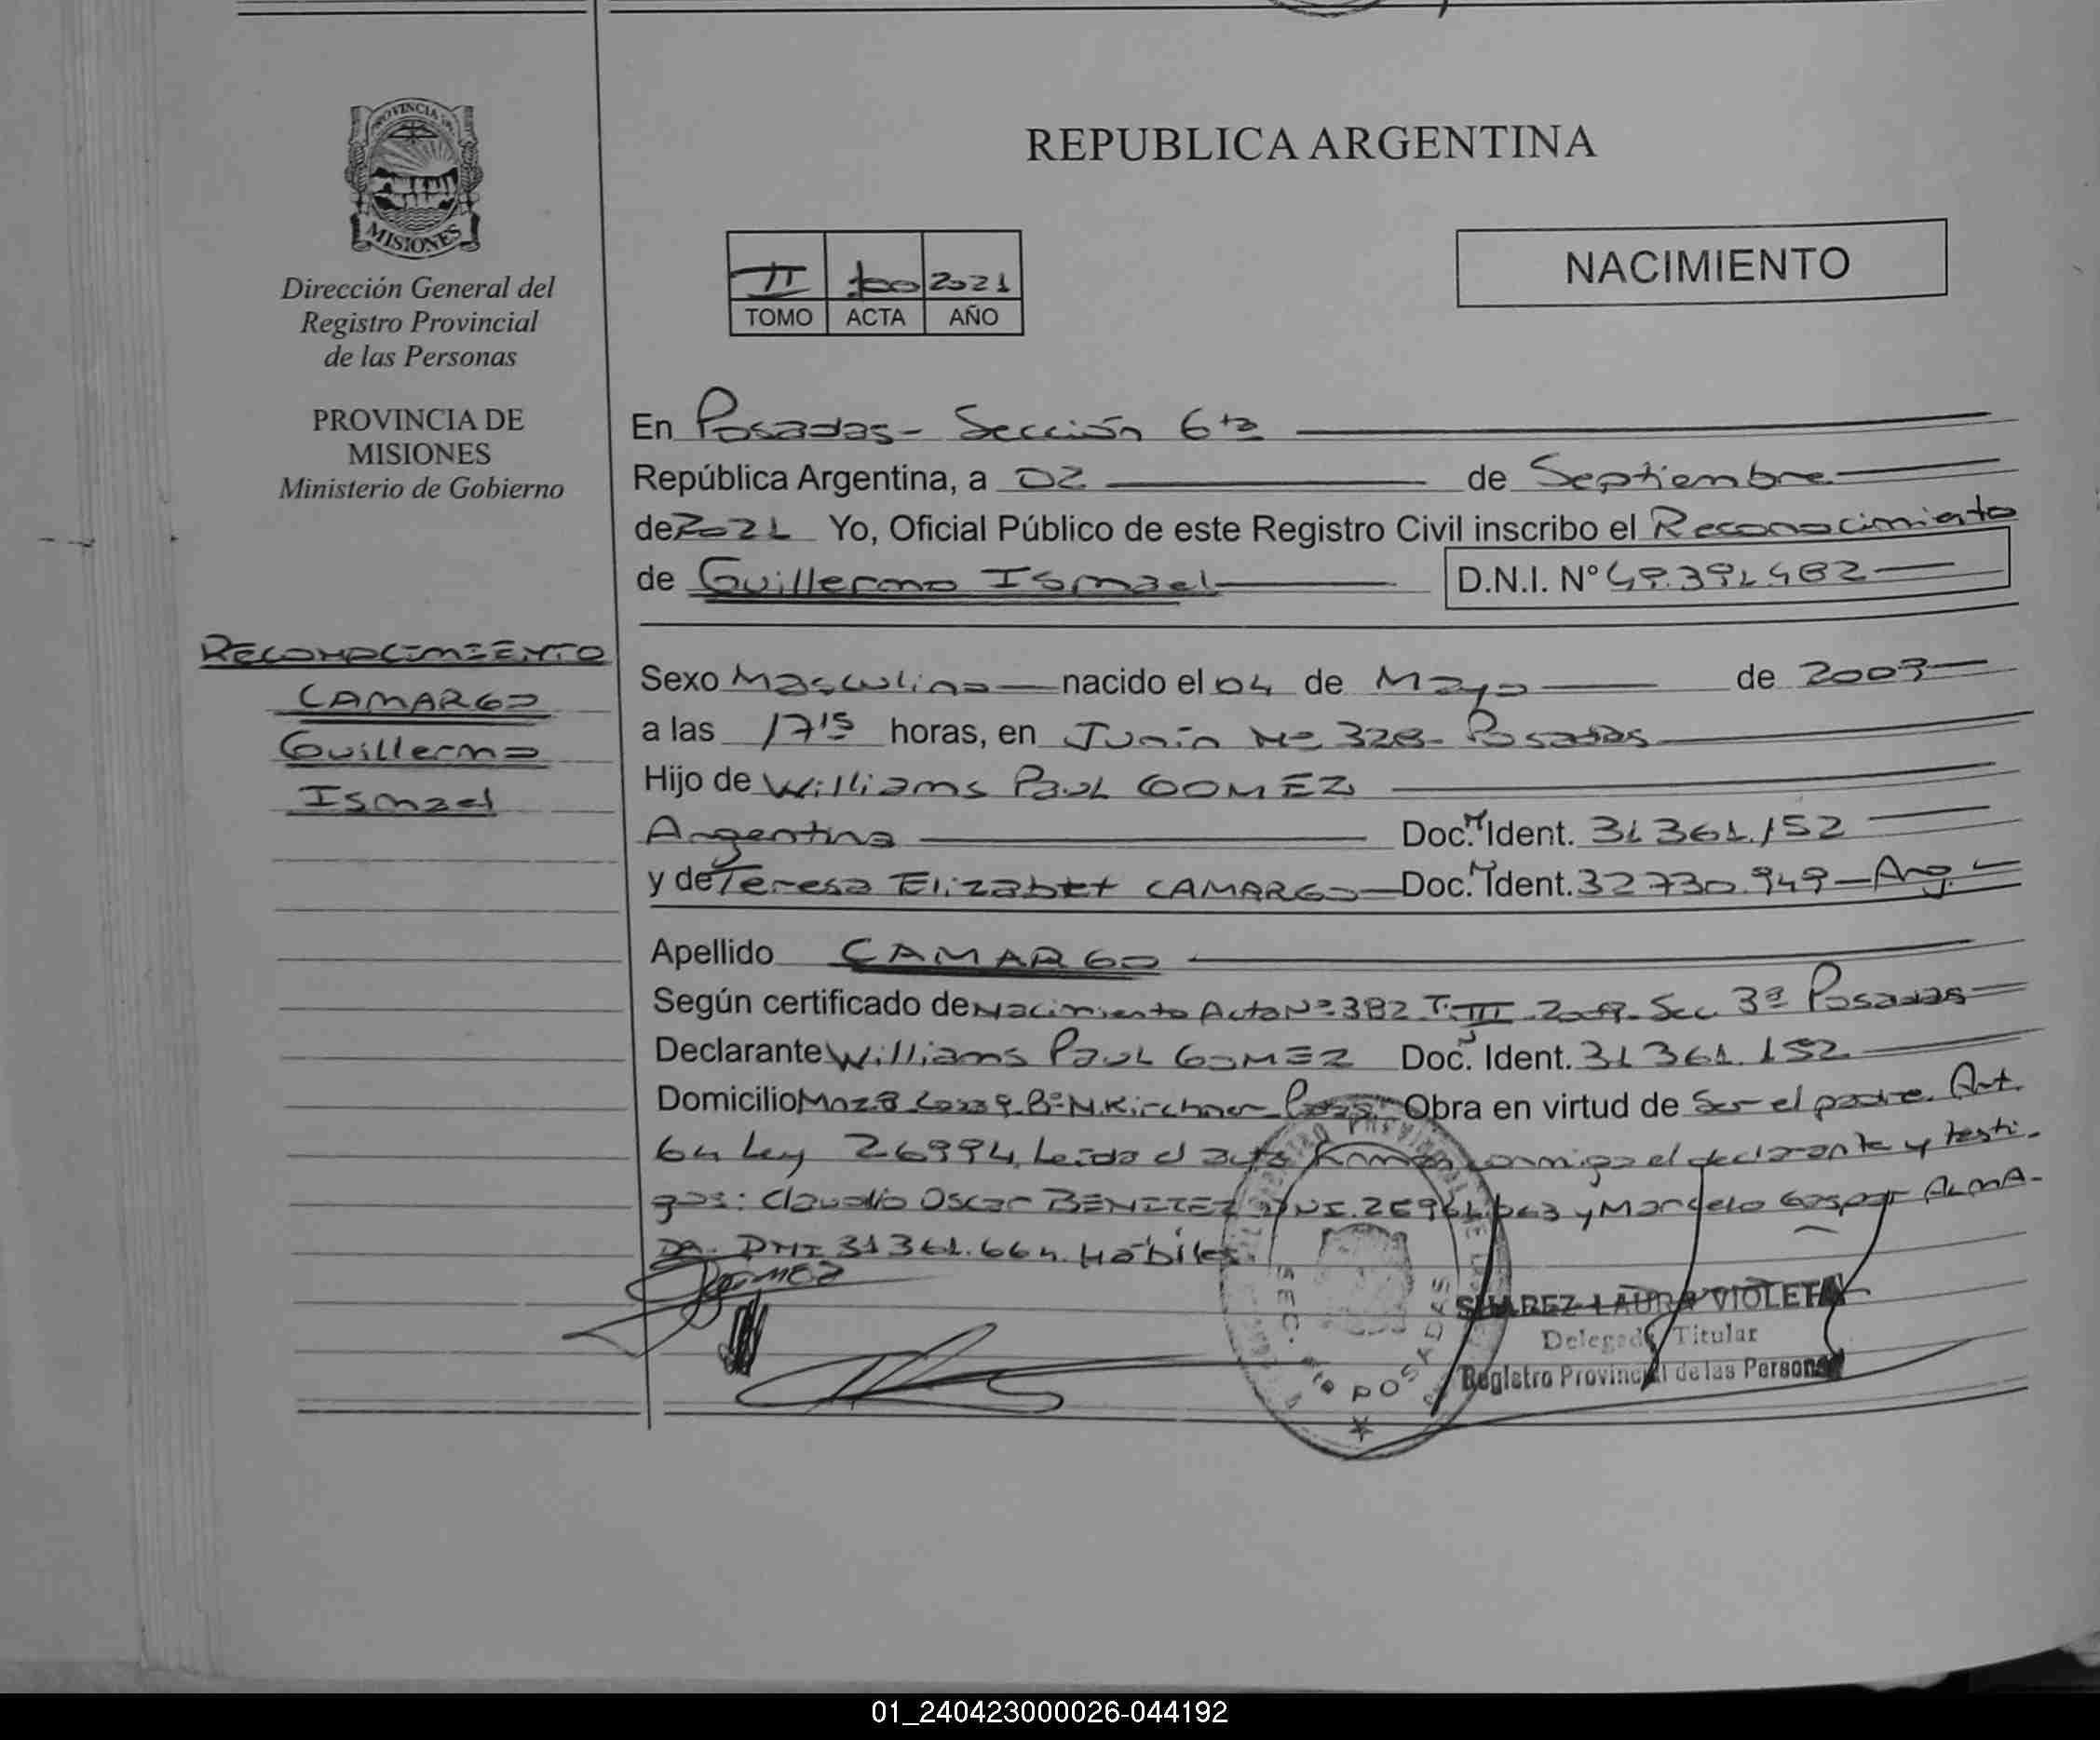 REPUBLICA ARGENTINA
PROVINCIA DE
MISIONES
Dirección General del
Registro Provincial
de las Personas
PROVINCIA DE
MISIONES
Ministerio de Gobierno
II 100 2021
TOMO ACTA AÑO
NACIMIENTO
En Posadas - Sección 6ta
República Argentina, a 02 de Septiembre
de 2021 Yo, Oficial Público de este Registro Civil inscribo el Reconocimiento
de Guillermo Ismael D.N.I. Nº
RECONOCIMIENTO
CAMARGO
Guillermo
Ismael
Sexo Masculino nacido el 04 de Mayo de 2009
a las 17:15 horas, en Junín Nº 328 - Posadas
Hijo de Williams Paul GOMEZ
Argentina Doc. Ident. 31 361.152
y de Teresa Elizabet CAMARGO Doc. Ident. 32 730.949 - Arg.
Apellido CAMARGO
Según certificado de Nacimiento Acta Nº 382 T. III - 2009 - Sec. 3ª Posadas
Declarante Williams Paul GOMEZ Doc. Ident. 31 361.152
Domicilio Mnz 8 Casa 9 Bº N. Kirchner Obra en virtud de Ser el padre. Art.
64 Ley 26994. Leída el acta Firman conmigo el declarante y testi-
gos: Claudio Oscar BENITEZ DNI y Marcelo Gaspar ALMA-
DA. DNI 31 361.664. Hábiles.
Gomez
SUAREZ LAURA VIOLETA
Delegada Titular
Registro Provincial de las Personas
SEC. 6ta POSADAS
01_240423000026-044192